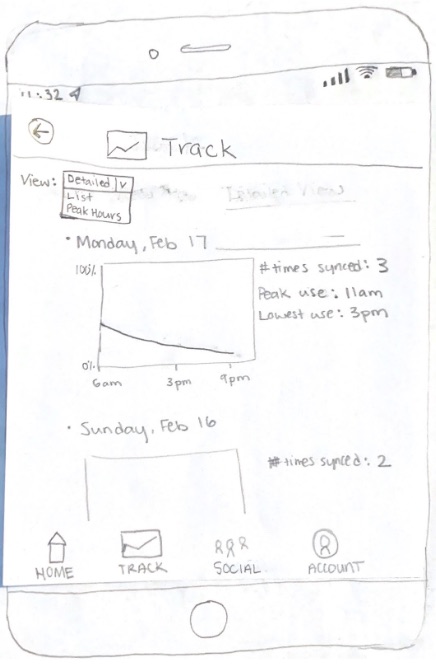 11:32
Track
View: Detailed v
List
Peak Hours
Detailed View
• Monday, Feb 17
100%
# times synced: 3
Peak use: 11am
Lowest use: 3pm
0%
6am 3pm 9pm
• Sunday, Feb 16
# times synced: 2
HOME TRACK SOCIAL ACCOUNT